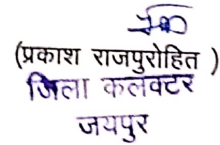 (प्रकाश राजपुरोहित )
जिला कलक्टर
जयपुर